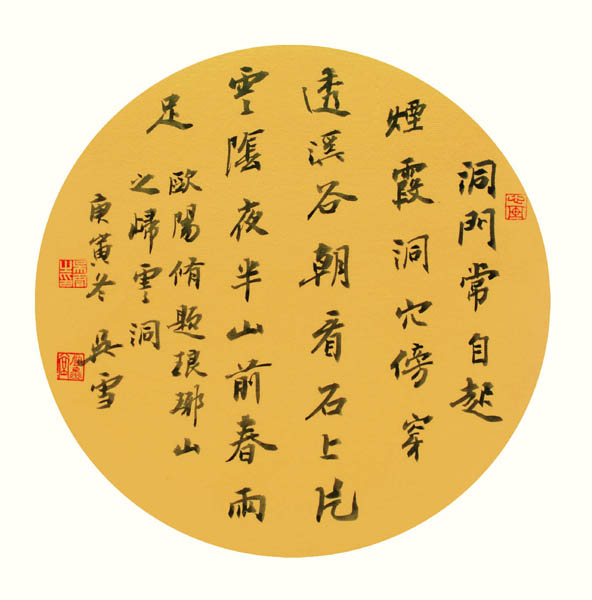 洞門常自起
煙霞洞穴傍穿
透溪谷朝看石上片
雲陰夜半山前春雨
足
歐陽脩題琅琊山
之歸雲洞
庚寅冬 吳雪